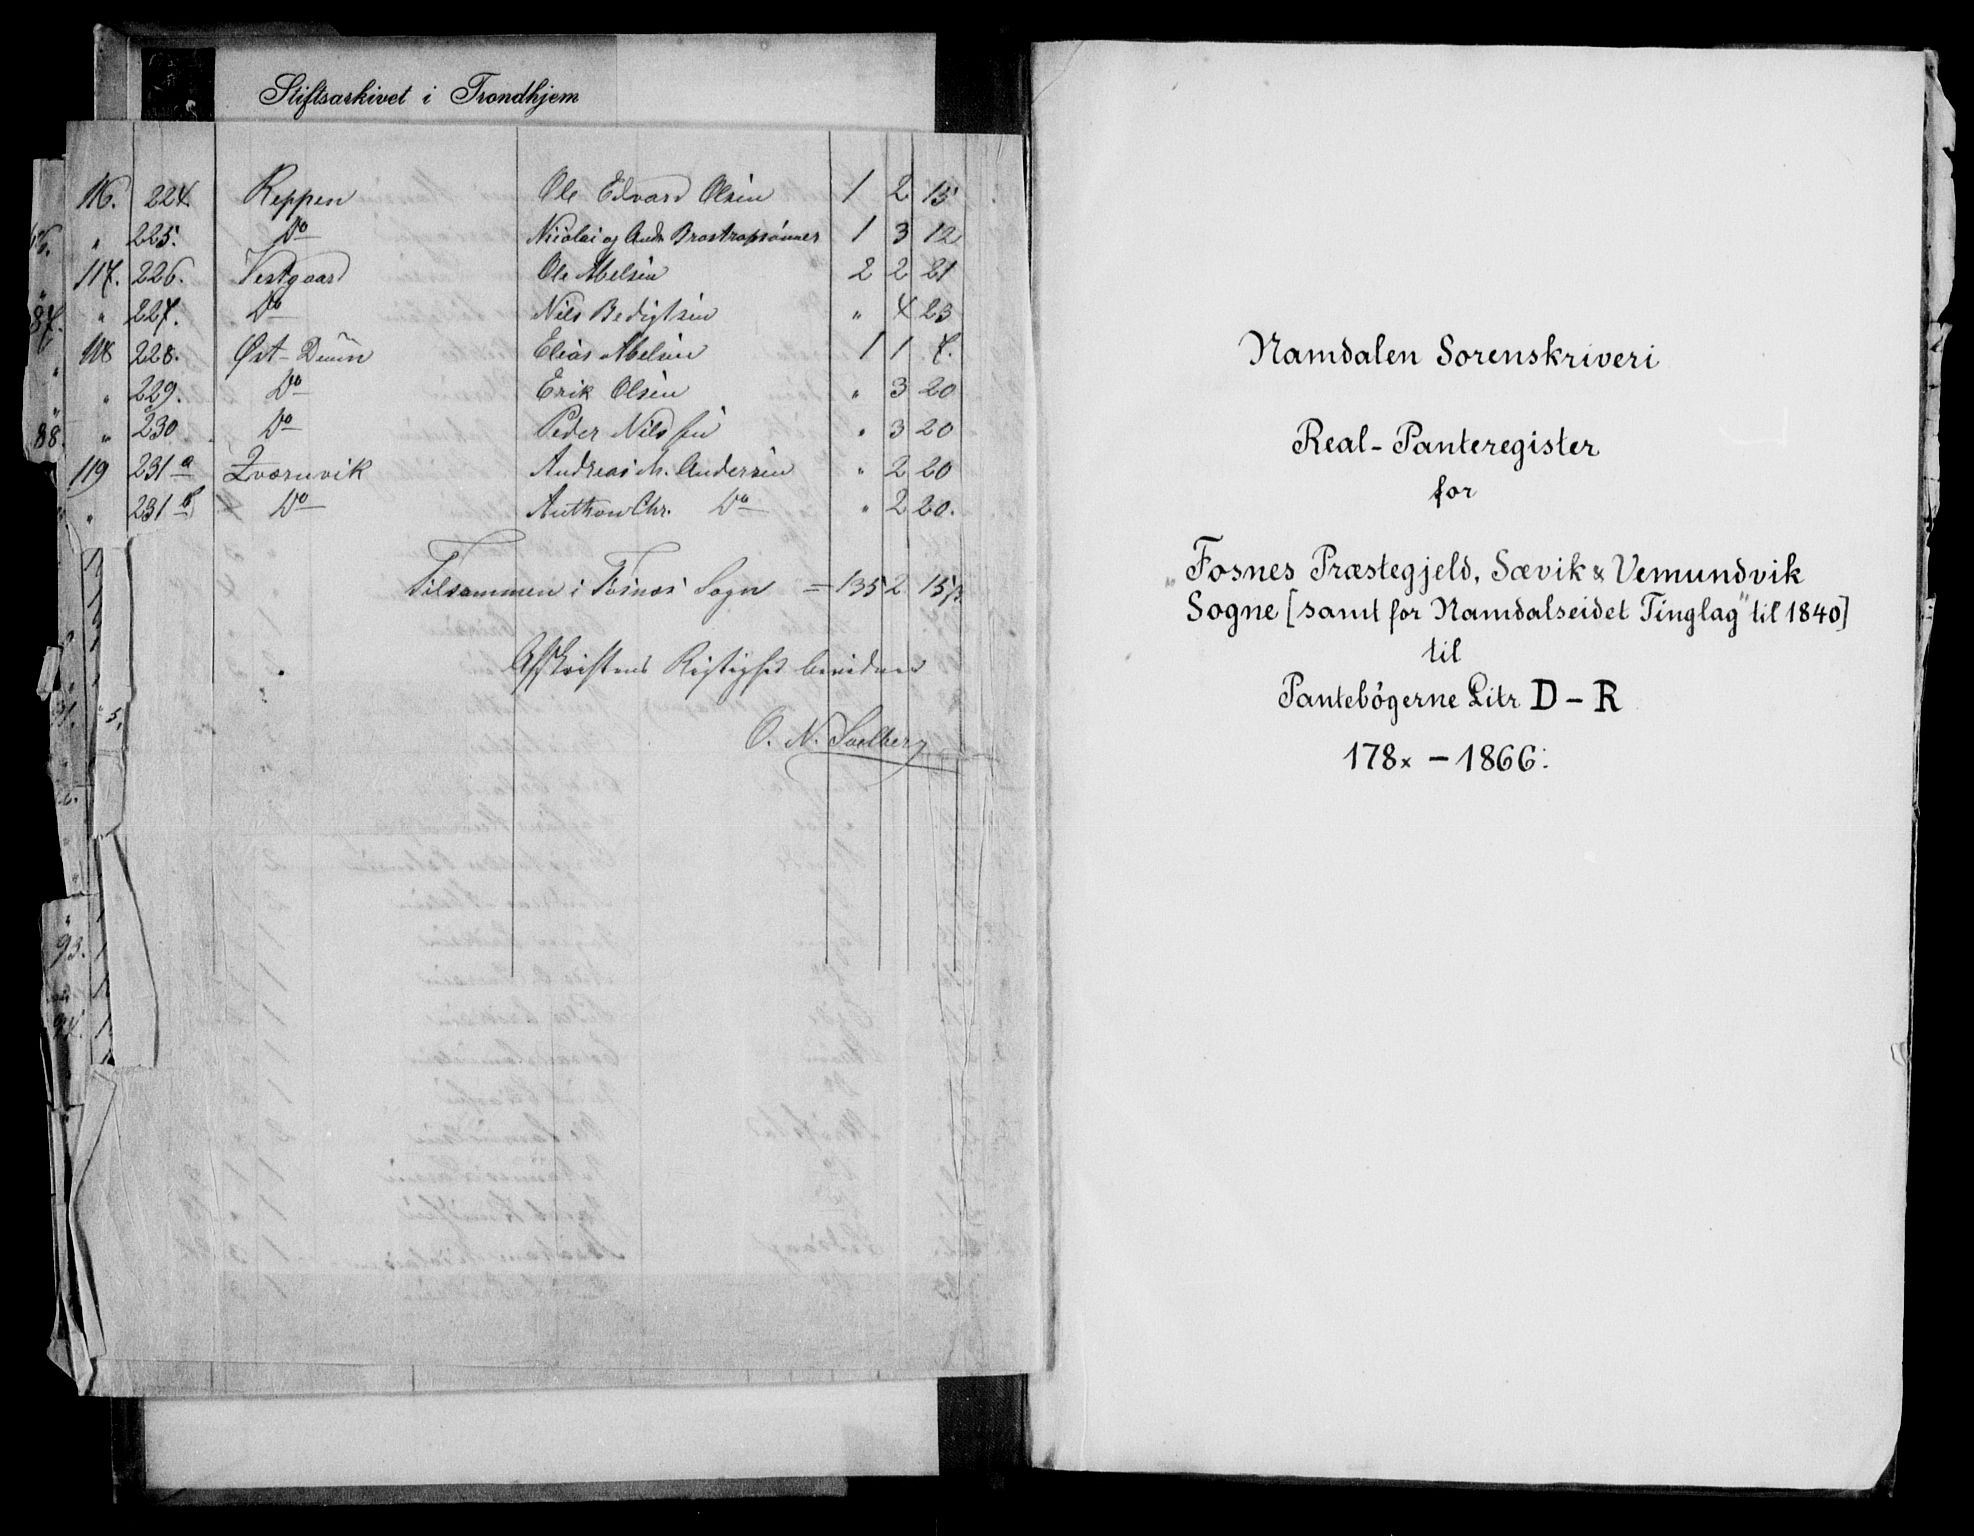 Stiftsarkivet i Trondhjem
116. 224 Reppen Ole Edvard Olsen 1 2 15
" 225. Do Nicolai og Andr. Brostrøpsønner 1 3 12
117. 226. Vestgaard Ole Abelsen 2 2 21
" 227. Do Nils Bedigtsen " 4 23
118 228. Øst-Duun Elias Abelsen 1 1 7.
" 229. Do Erik Olsen " 3 20
" 230 Do Peder Nilssen " 3 20
119 231 a Andreas M. Andersen " 2 20
" 231 b Do Anthon Chr. Do " 2 20.
Tilsammen i Fosnes Sogn = 135 2 15
Afskriftens Rigtighed bevidner
O. N.
87.
88.
93.
94.
Namdalen Sorenskriveri
Real-Panteregister
for
"Fosnes Præstegjeld, Sævik & Vemundvik
Sogne [samt for Namdalseidet Tinglag" til 1840]
til
Pantebøgerne Litr D - R
178x - 1866.